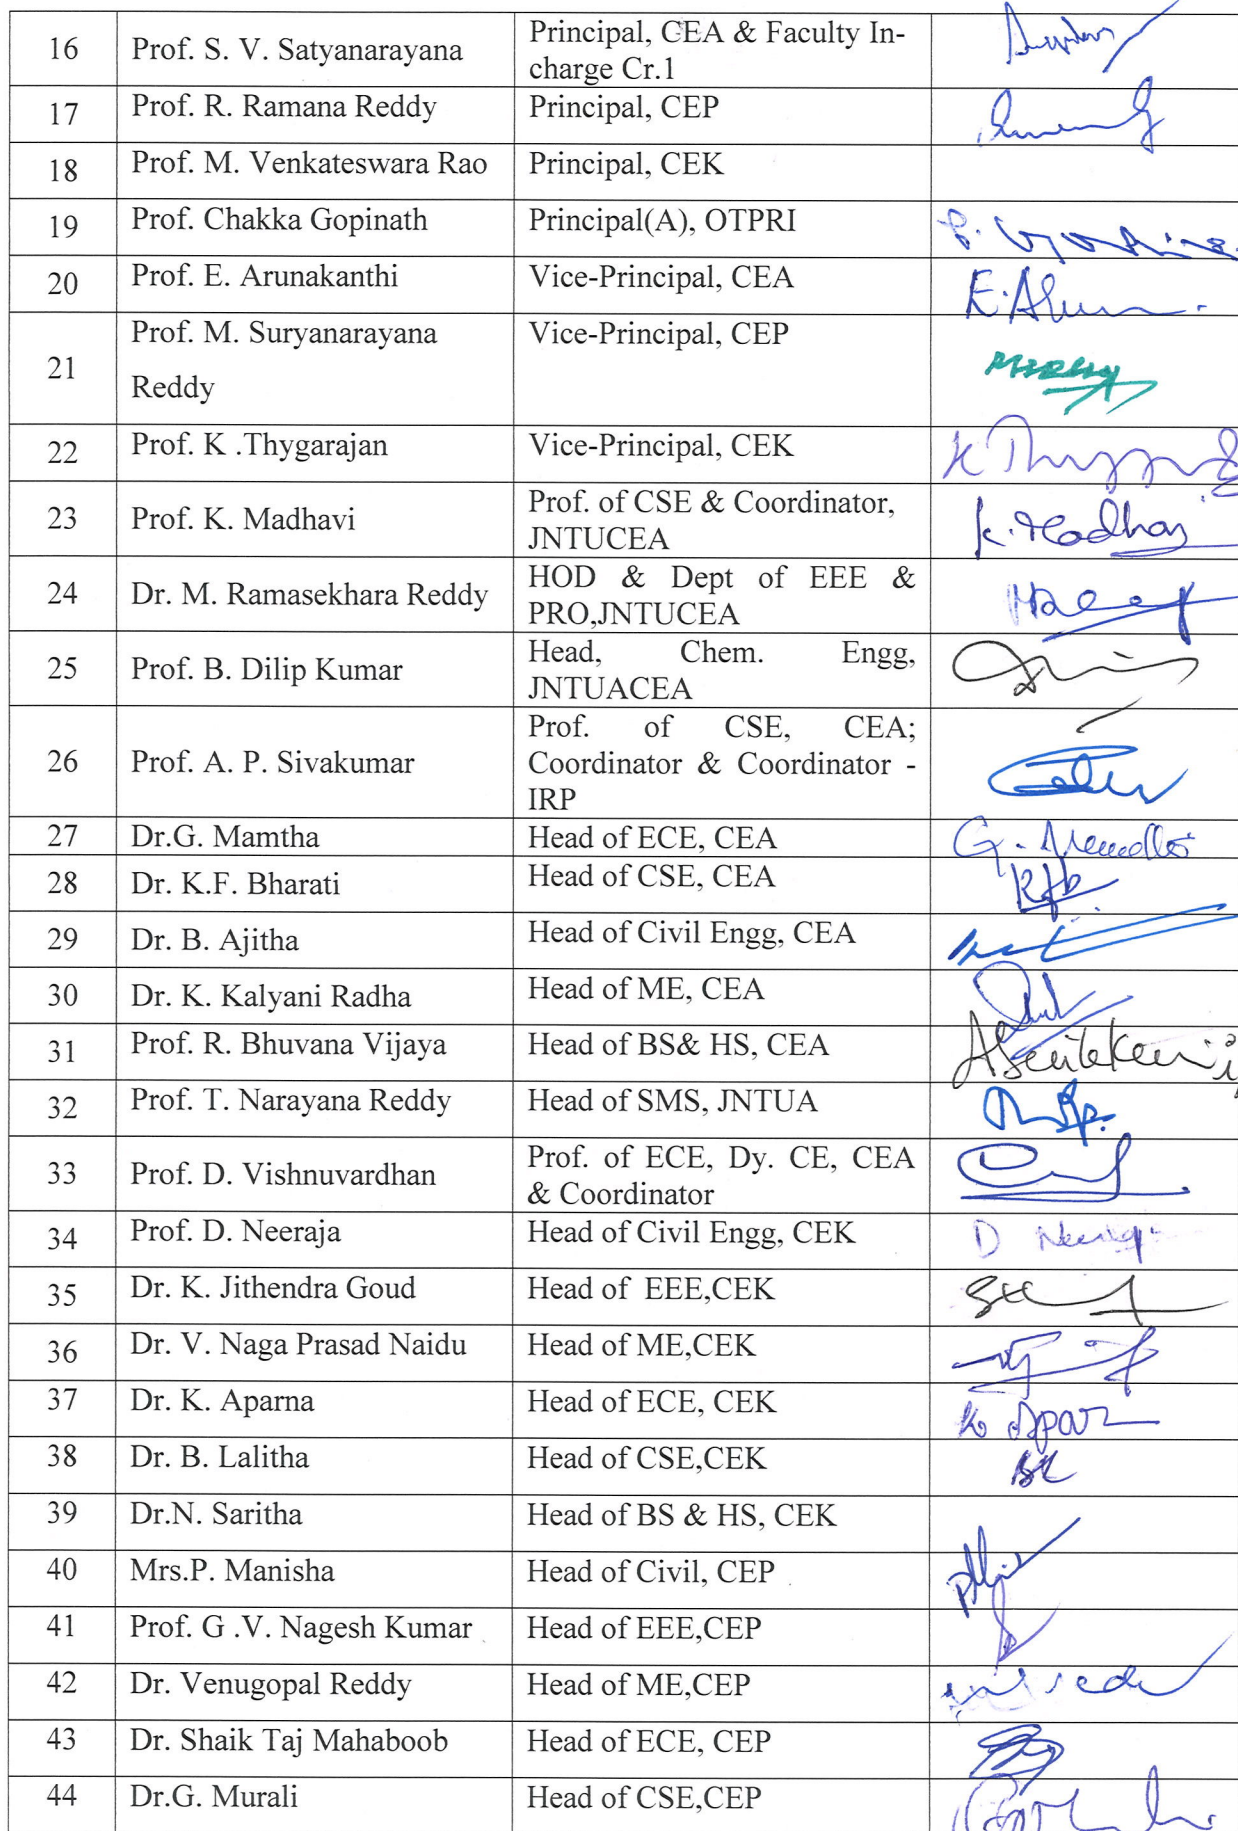 16 Prof. S. V. Satyanarayana Principal, CEA & Faculty In-
charge Cr.1
17 Prof. R. Ramana Reddy Principal, CEP
18 Prof. M. Venkateswara Rao Principal, CEK
19 Prof. Chakka Gopinath Principal(A), OTPRI
20 Prof. E. Arunakanthi Vice-Principal, CEA
21 Prof. M. Suryanarayana Vice-Principal, CEP
Reddy
22 Prof. K .Thygarajan Vice-Principal, CEK
23 Prof. K. Madhavi Prof. of CSE & Coordinator,
JNTUCEA K. Madhavi
24 Dr. M. Ramasekhara Reddy HOD & Dept of EEE &
PRO,JNTUCEA
25 Prof. B. Dilip Kumar Head, Chem. Engg,
JNTUACEA
26 Prof. A. P. Sivakumar Prof. of CSE, CEA;
Coordinator & Coordinator -
IRP
27 Dr.G. Mamtha Head of ECE, CEA
28 Dr. K.F. Bharati Head of CSE, CEA
29 Dr. B. Ajitha Head of Civil Engg, CEA
30 Dr. K. Kalyani Radha Head of ME, CEA
31 Prof. R. Bhuvana Vijaya Head of BS& HS, CEA
32 Prof. T. Narayana Reddy Head of SMS, JNTUA
33 Prof. D. Vishnuvardhan Prof. of ECE, Dy. CE, CEA
& Coordinator
34 Prof. D. Neeraja Head of Civil Engg, CEK D Neeraja
35 Dr. K. Jithendra Goud Head of EEE,CEK
36 Dr. V. Naga Prasad Naidu Head of ME,CEK
37 Dr. K. Aparna Head of ECE, CEK
38 Dr. B. Lalitha Head of CSE,CEK
39 Dr.N. Saritha Head of BS & HS, CEK
40 Mrs.P. Manisha Head of Civil, CEP
41 Prof. G .V. Nagesh Kumar Head of EEE,CEP
42 Dr. Venugopal Reddy Head of ME,CEP
43 Dr. Shaik Taj Mahaboob Head of ECE, CEP
44 Dr.G. Murali Head of CSE,CEP